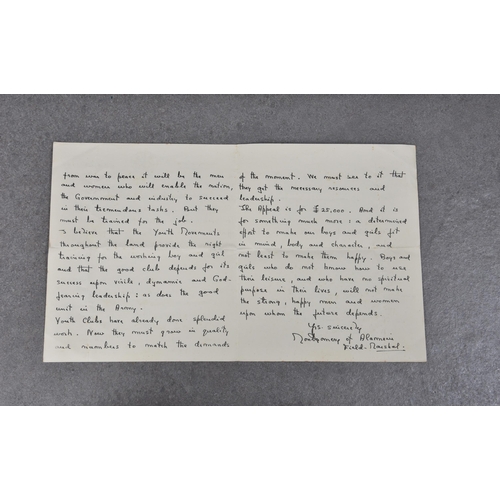 from war to peace it will be the men
and women who will enable the nation,
the Government and industry to succeed
in their tremendous tasks. But they
must be trained for the job.
I believe that the Youth Movements
throughout the land provide the right
training for the working boy and girl
and that the good club depends for its
success upon virile, dynamic and God-
fearing leadership: as does the good
unit in the Army.
Youth Clubs have already done splendid
work. Now they must grow in quality
and numbers to match the demands
of the moment. We must see to it that
they get the necessary resources and
leadership.
The Appeal is for £25.000. And it is
for something much more: a determined
effort to make our boys and girls fit
in mind, body and character, and
not least to make them happy. Boys and
girls who do not know how to use
their leisure, and who have no spiritual
purpose in their lives, will not make
the strong, happy men and women
upon whom the future depends.
Yrs. sincerely
Montgomery of Alamein
Field-Marshal.